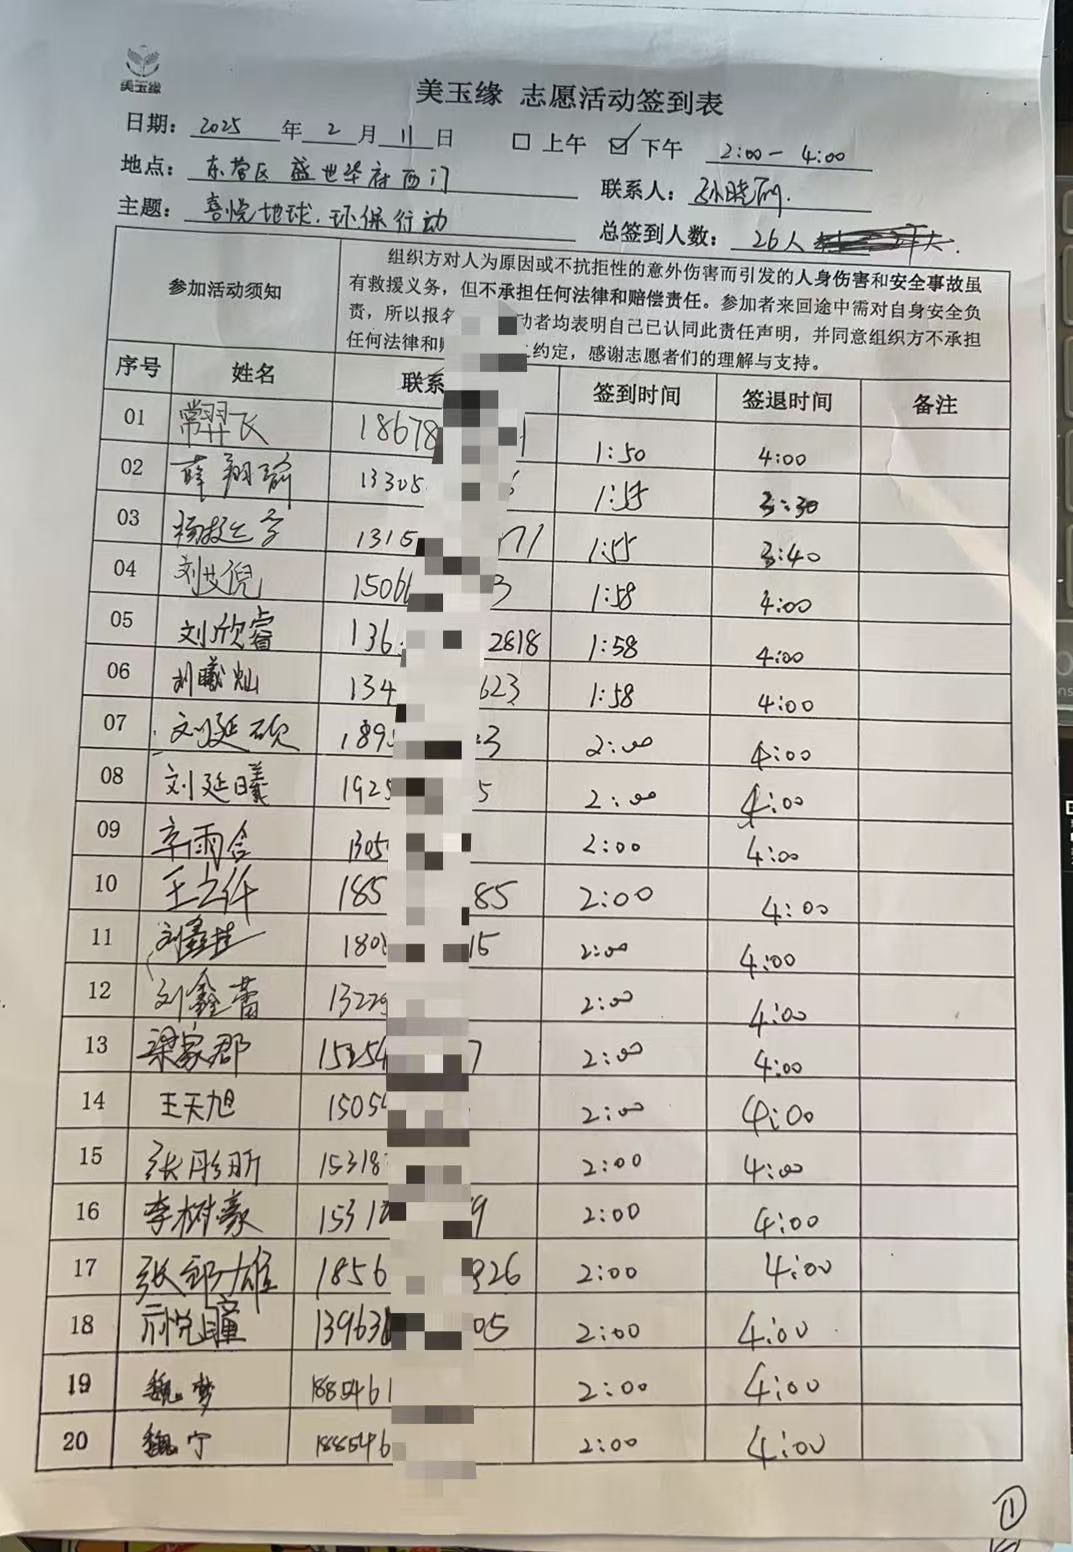 美玉缘
美玉缘 志愿活动签到表
日期: 2025 年 2 月 11 日 □ 上午 ☑ 下午 2:00-4:00
地点: 东营区 盛世华府西门 联系人: 孙晓丽.
主题: 喜悦地球.环保行动 总签到人数: 26人
参加活动须知
组织方对人为原因或不抗拒性的意外伤害而引发的人身伤害和安全事故虽
有救援义务，但不承担任何法律和赔偿责任。参加者来回途中需对自身安全负
责，所以报名 动者均表明自己已认同此责任声明，并同意组织方不承担
任何法律和 约定，感谢志愿者们的理解与支持。
序号 姓名 联系 签到时间 签退时间 备注
01 常羿飞 18678 1 1:50 4:00
02 薛翔瑜 13305 6 1:55 3:30
03 1315 71 1:55 3:40
04 刘艾倪 15066 3 1:58 4:00
05 刘欣睿 136 2818 1:58 4:00
06 刘曦灿 134 623 1:58 4:00
07 刘延硕 189 3 2:00 4:00
08 刘延曦 1925 5 2:00 4:00
09 辛雨含 1305 2:00 4:00
10 王立仟 185 85 2:00 4:00
11 刘鑫 180 15 2:00 4:00
12 刘鑫蕾 13229 2:00 4:00
13 梁家郡 15254 7 2:00 4:00
14 王天旭 15054 2:00 4:00
15 张彤昕 15318 2:00 4:00
16 李树豪 1531 9 2:00 4:00
17 张郅雄 1856 926 2:00 4:00
18 悦瞳 139638 05 2:00 4:00
19 魏梦 1885461 2:00 4:00
20 魏宁 188546 2:00 4:00
①